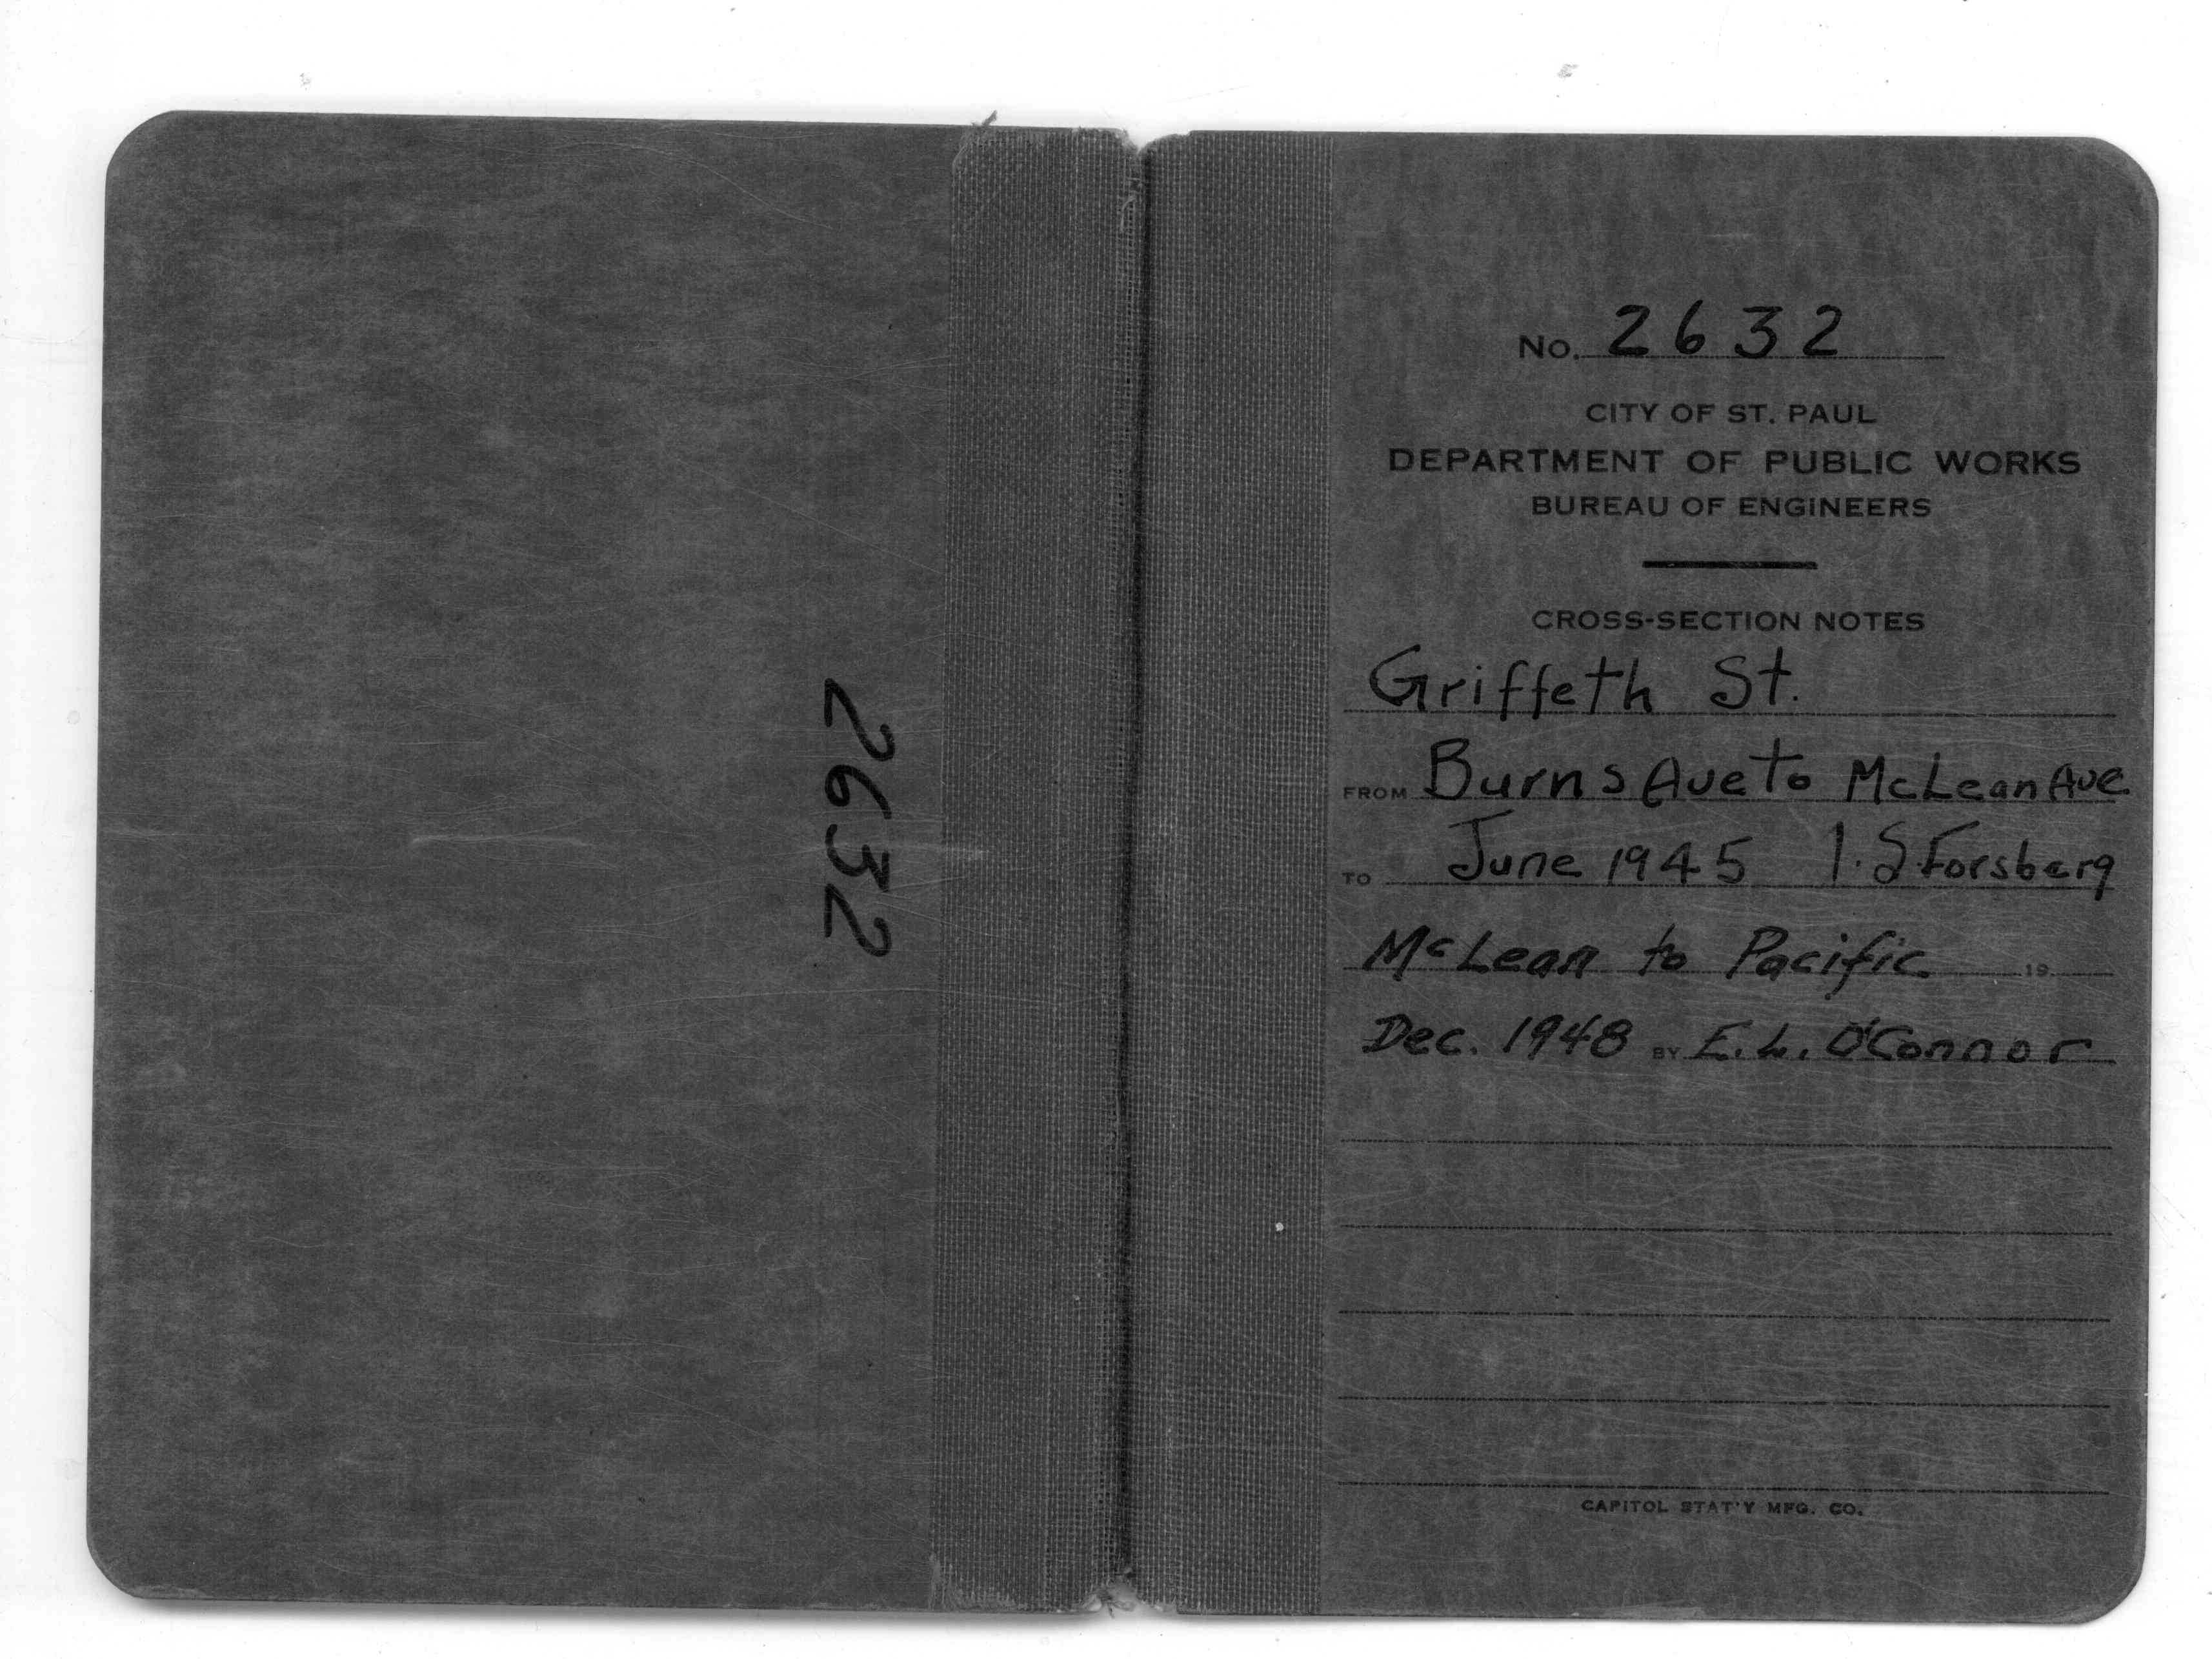 2632
No. 2632
CITY OF ST. PAUL
DEPARTMENT OF PUBLIC WORKS
BUREAU OF ENGINEERS
CROSS-SECTION NOTES
Griffeth St.
FROM Burns Ave to McLean Ave
TO June 1945 I. S Forsberg
McLean to Pacific 19
Dec. 1948 BY E. L. O'Connor
CAPITOL STAT'Y MFG. CO.